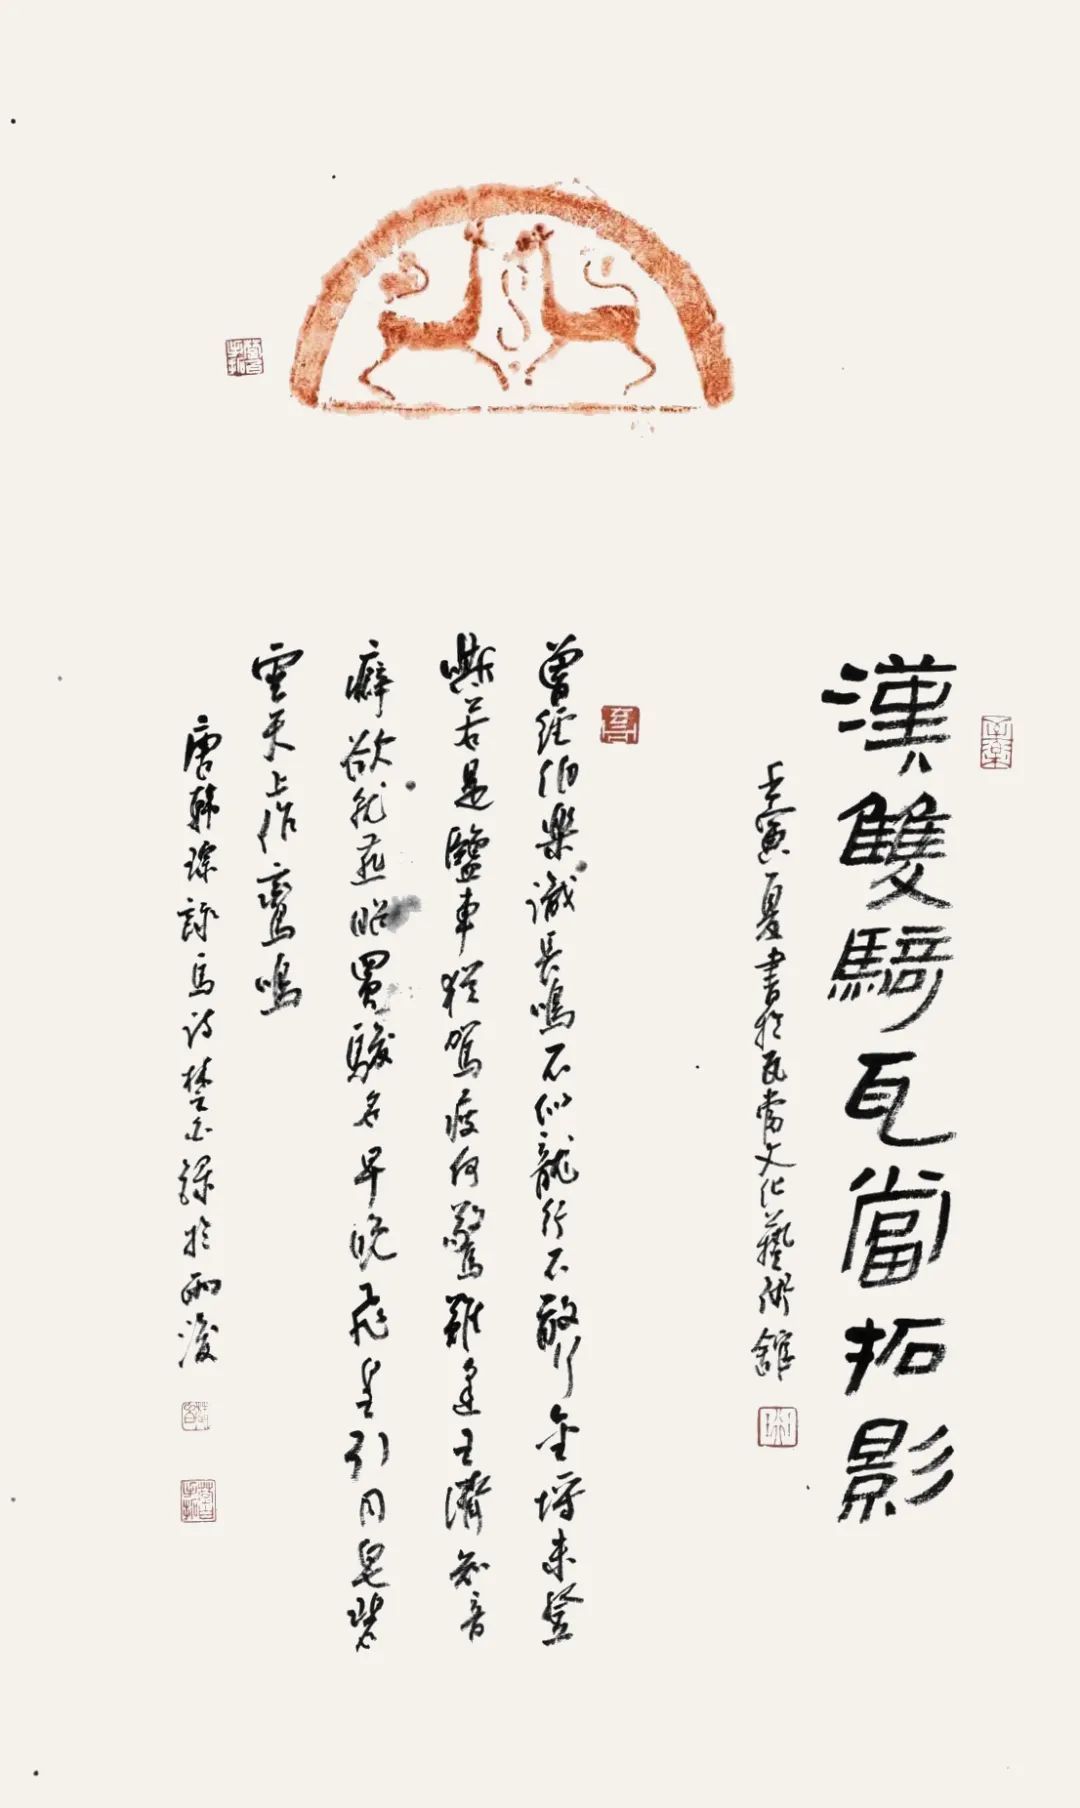 漢雙騎瓦當拓影
壬寅夏書於瓦當文化藝術館
曾經伯樂識長鳴不似龍行不敢行金埒未登
嘶若是鹽車猶駕疲何驚難逢王濟知音
癖欲就燕昭買駿名早晚飛皇引同皂碧
雲天上作鸞鳴
唐韓琮詠馬詩楚錄於雨